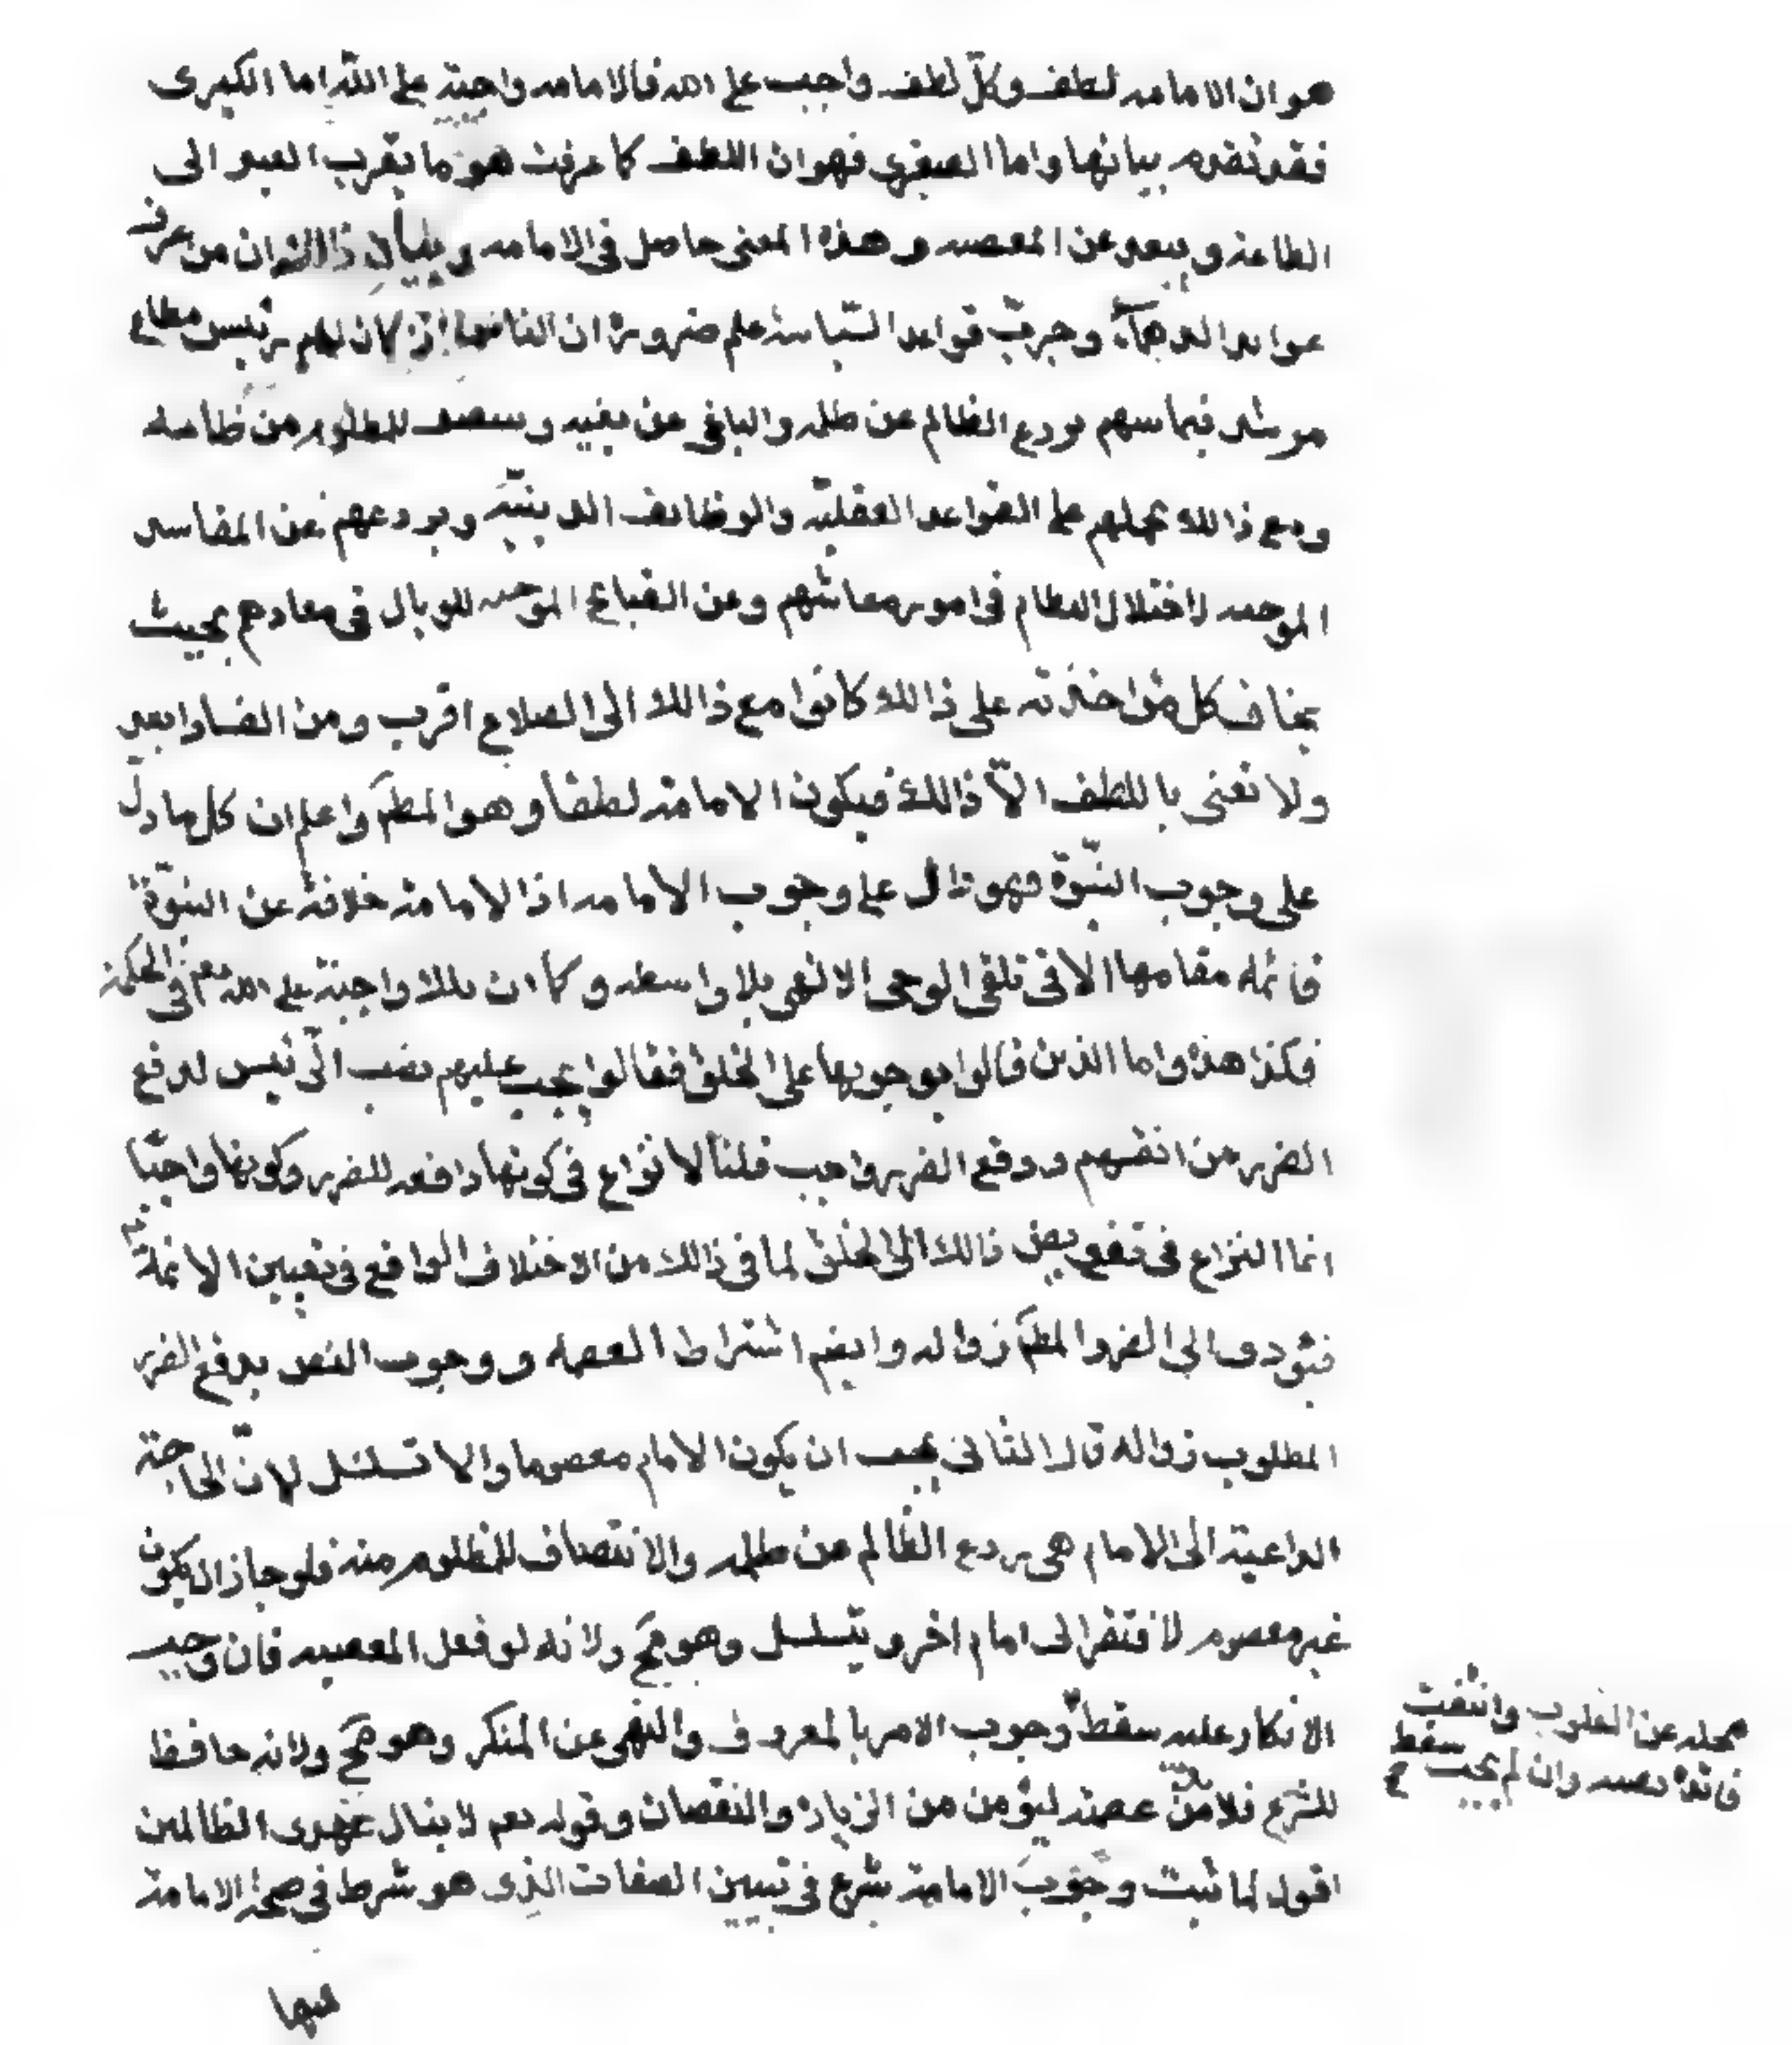 هو ان الامامه لطف وكلّ لطف واجب على الله فالامامه واجبة على الله اما الكبرى
فقد تقدم بيانها واما الصغرى فهو ان اللطف كما عرفت هو ما يقرب العبد الى
الطاعة ويبعد عن المعصيه وهذا المعنى حاصل فى الامامه وبيان ذالك ان من عرف
عوايد الدهماء وجربّ قواعد السّياسة علم ضرورة ان الناس اذا كان لهم رئيس مطاع
مرشد فيما بينهم يردع الظالم عن ظلمه والباغى عن بغيه وينتصف للمظلوم من ظالمه
ومع ذالك يحملهم على القواعد العقليّه والوظائف الدينيّه ويردعهم عن المفاسد
الموجبه لاختلال النظام فى امور معاشهم وعن القبايح الموجبه للوبال فى معادهم بحيث
يخاف كل من مؤاخذته على ذالك كانوا مع ذالك الى الصلاح اقرب ومن الفساد ابعد
ولا نعنى باللطف الاّ ذالك فيكون الامامة لطفا وهو المطم واعلم ان كل ما دل
على وجوب النبّوة فهو دال على وجوب الامامه اذ الامامة خلافة عن النبوّة
قائمه مقامها الا فى تلقى الوحى الالهى بلا واسطه وكما ان تلك واجبة على الله تعم فى الحكمة
فكذا هذه واما الذين قالوا بوجوبها على الخلق فقالوا يجب عليهم نصب الرّئيس لدفع
الضرر من انفسهم ودفع الضرر واجب قلنا لا نزاع فى كونها دافعه للضرر وكونها واجبّا
انما النزاع فى تفويض ذالك الى الخلق لما فى ذالك من الاختلاف الواقع فى تعيين الائمة
فيؤدى الى الضرر المطم زواله وايضم اشتراط العصمه ووجوب النص يدفع الضرر
المطلوب زواله قال الثانى يجب ان يكون الامام معصوما والا تسلسل لانّ الحاجة
الداعية الى الامام هى ردع الظالم عن ظلمه والانتصاف للمظلوم منه فلو جاز ان يكون
غير معصوم لافتقر الى امام اخر ويتسلسل وهو مح ولانه لو فعل المعصيه فان وجب
الانكار عليه سقط وجوب الامر بالمعروف والنهى عن المنكر وهو مح ولانه حافظ
للشرع فلا بدّ من عصمته ليؤمن من الزيادة والنقصان وقوله تعم لا ينال عهدى الظالمين
اقول لما ثبت وجوب الامامة شرع فى تبيين الصفات الذى هو شرط فى صحة الامامة
محله عن القلوب وانتفت
فائدة نصبه وان لم يجب سقط
فمنها